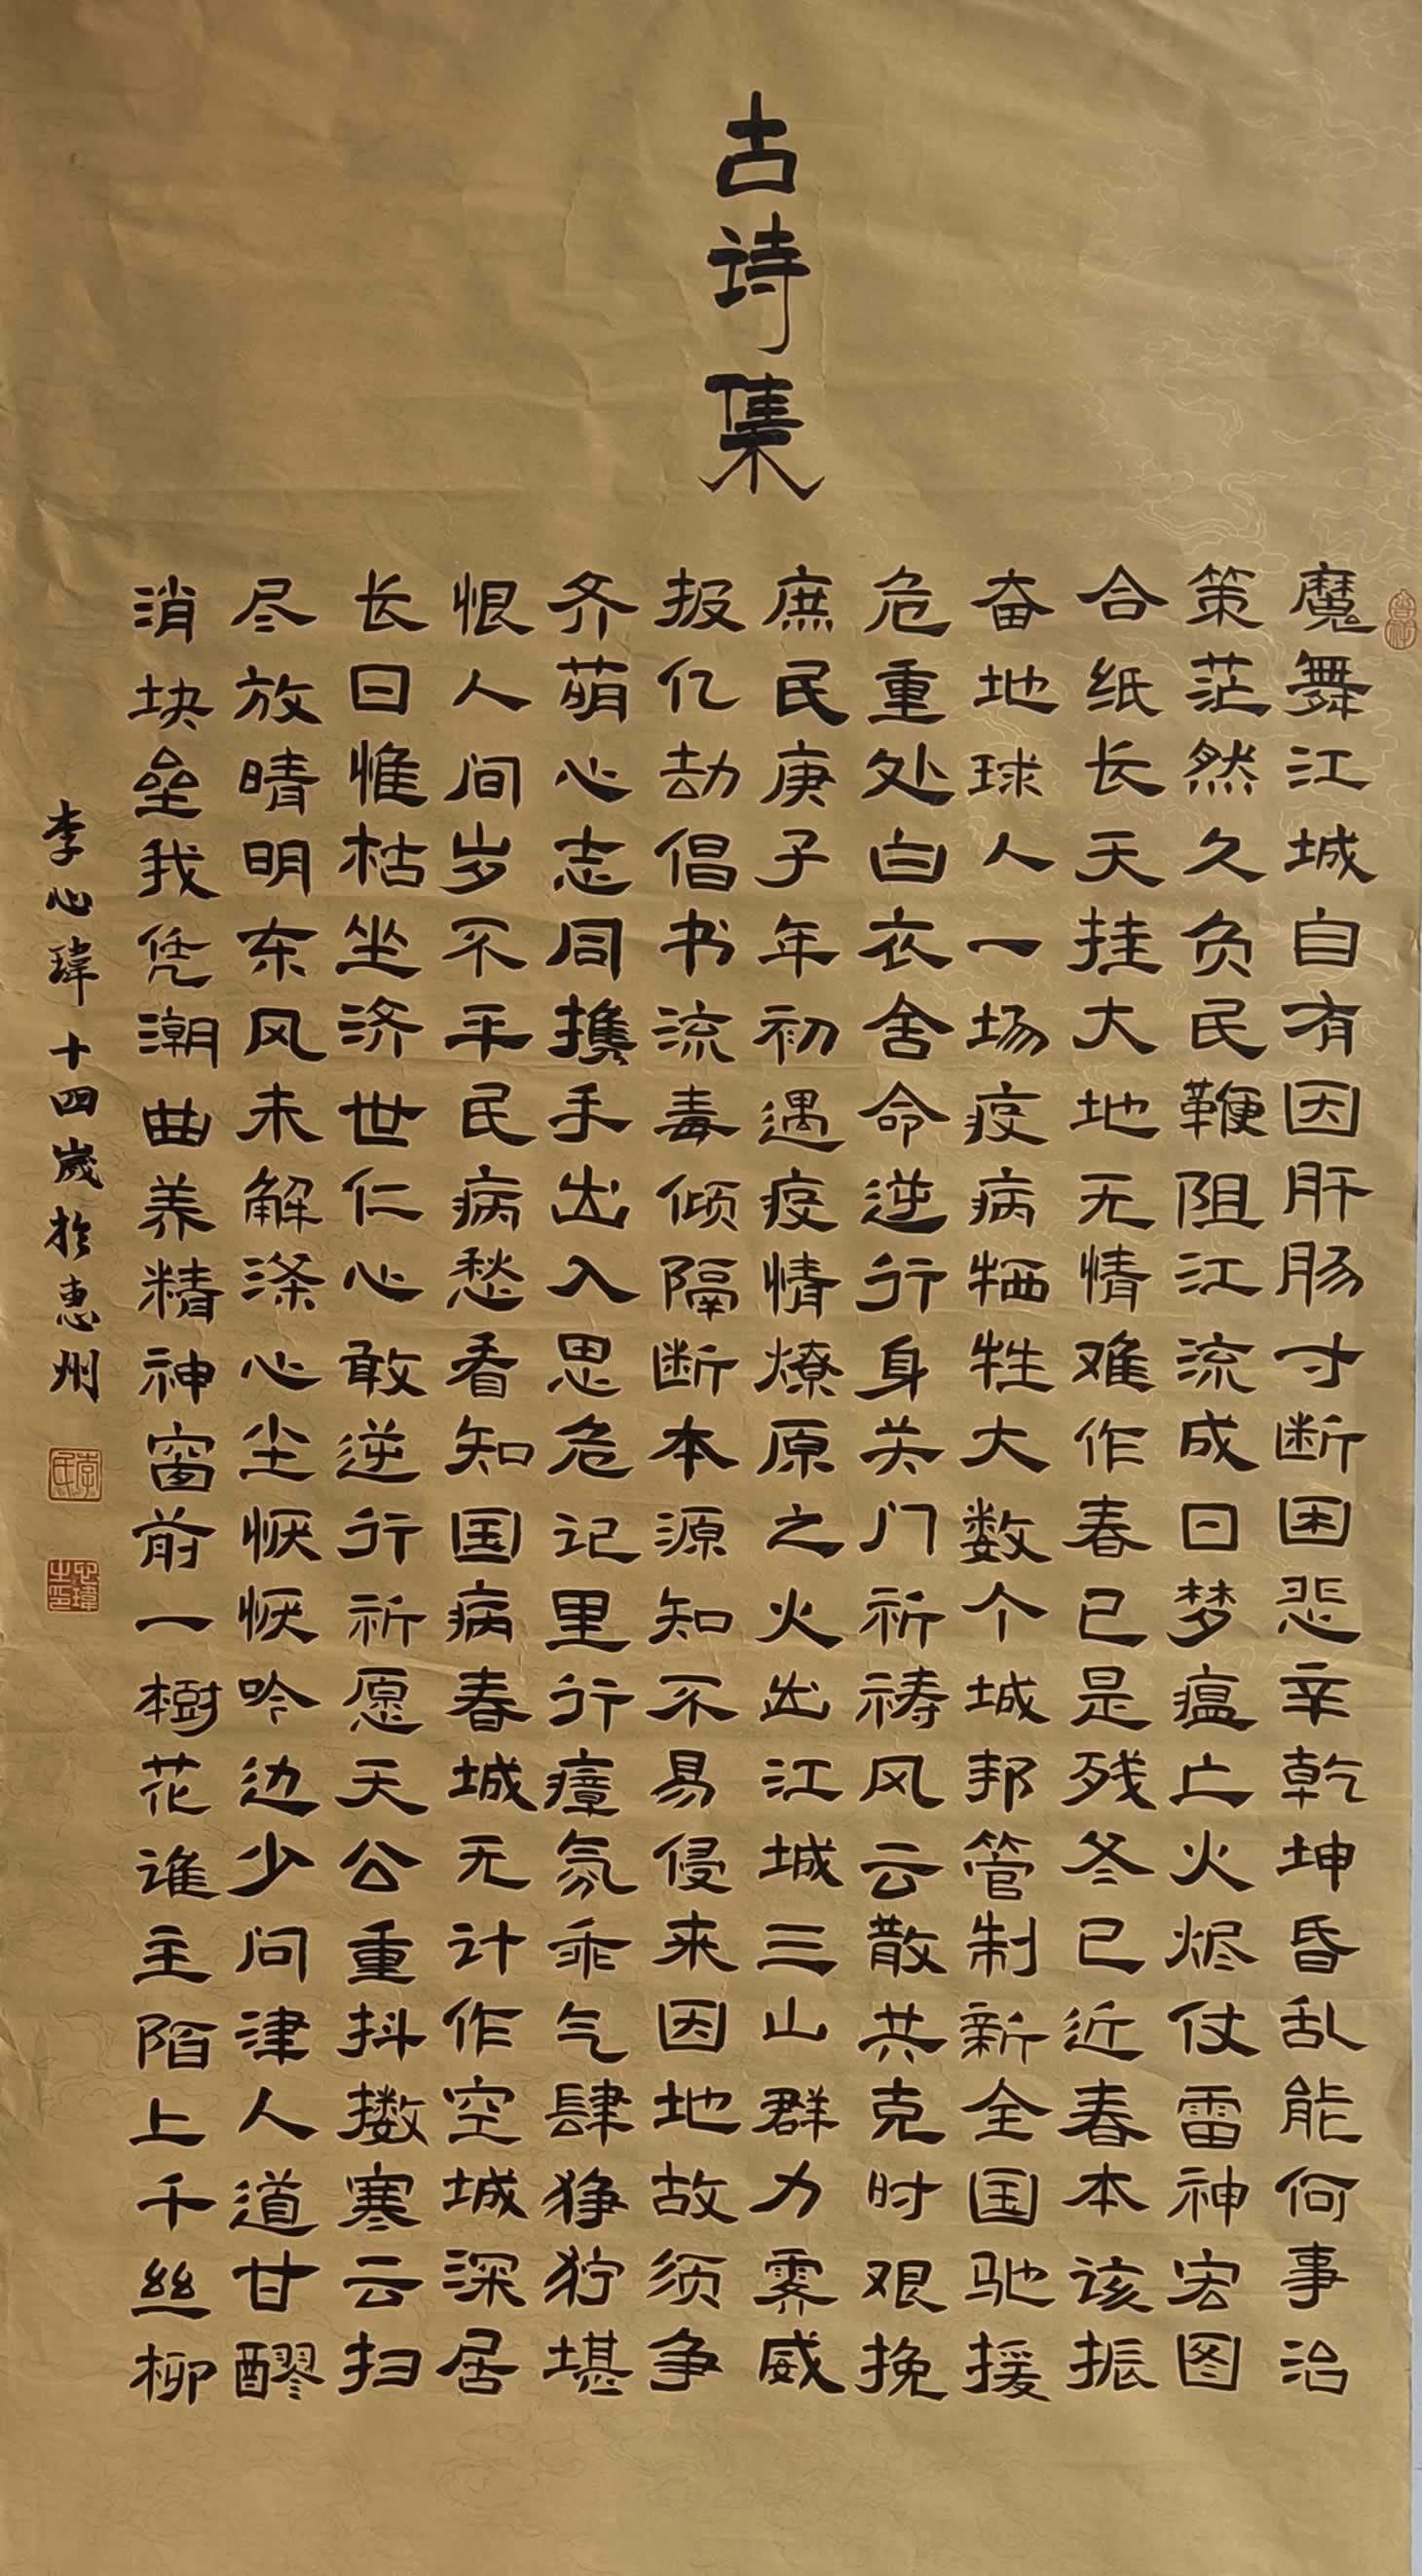 古诗集
魔舞江城自有因肝肠寸断困悲辛乾坤昏乱能何事治
策茫然久负民鞭阻江流成日梦瘟亡火烬仗雷神宏图
合纸长天挂大地无情难作春已是残冬已近春本该振
奋地球人一场疫病牺牲大数个城邦管制新全国驰援
危重处白衣舍命逆行身关门祈祷风云散共克时艰挽
庶民庚子年初遇疫情燎原之火出江城三山群力霁威
报亿劫倡书流毒倾隔断本源知不易侵来因地故须争
齐萌心志同携手出入思危记里行瘴氛乖气肆狰狞堪
恨人间岁不平民病愁看知国病春城无计作空城深居
长日惟枯坐济世仁心敢逆行祈愿天公重抖擞寒云扫
尽放晴明东风未解涤心尘恹恹吟边少问津人道甘醪
消块垒我凭潮曲养精神窗前一树花谁主陌上千丝柳
李心瑋十四歲於惠州
李氏
心瑋之印